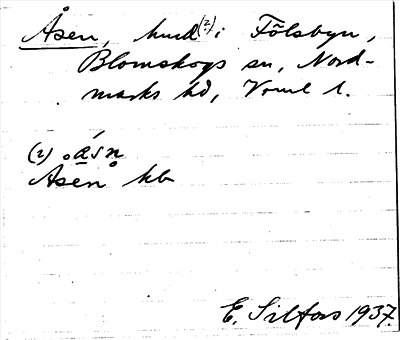 Åsen, hmd (2) i Fölsbyn,
Blomskogs sn, Nord-
marks hd, Vrml l.
(2) åsn̥
Åsen kb
E. Silfors 1937.